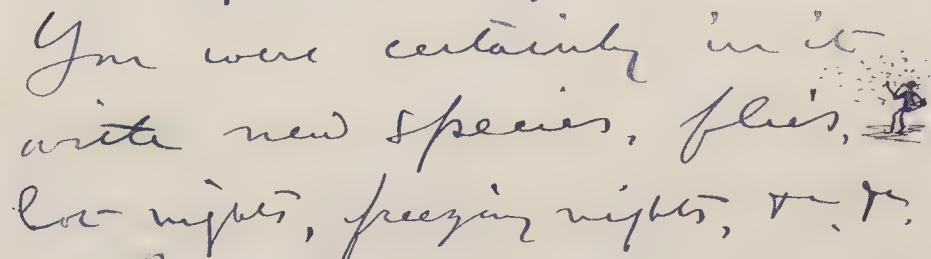 You were certainly in it
with new species, flies,
hot nights, freezing nights, &c. &c.